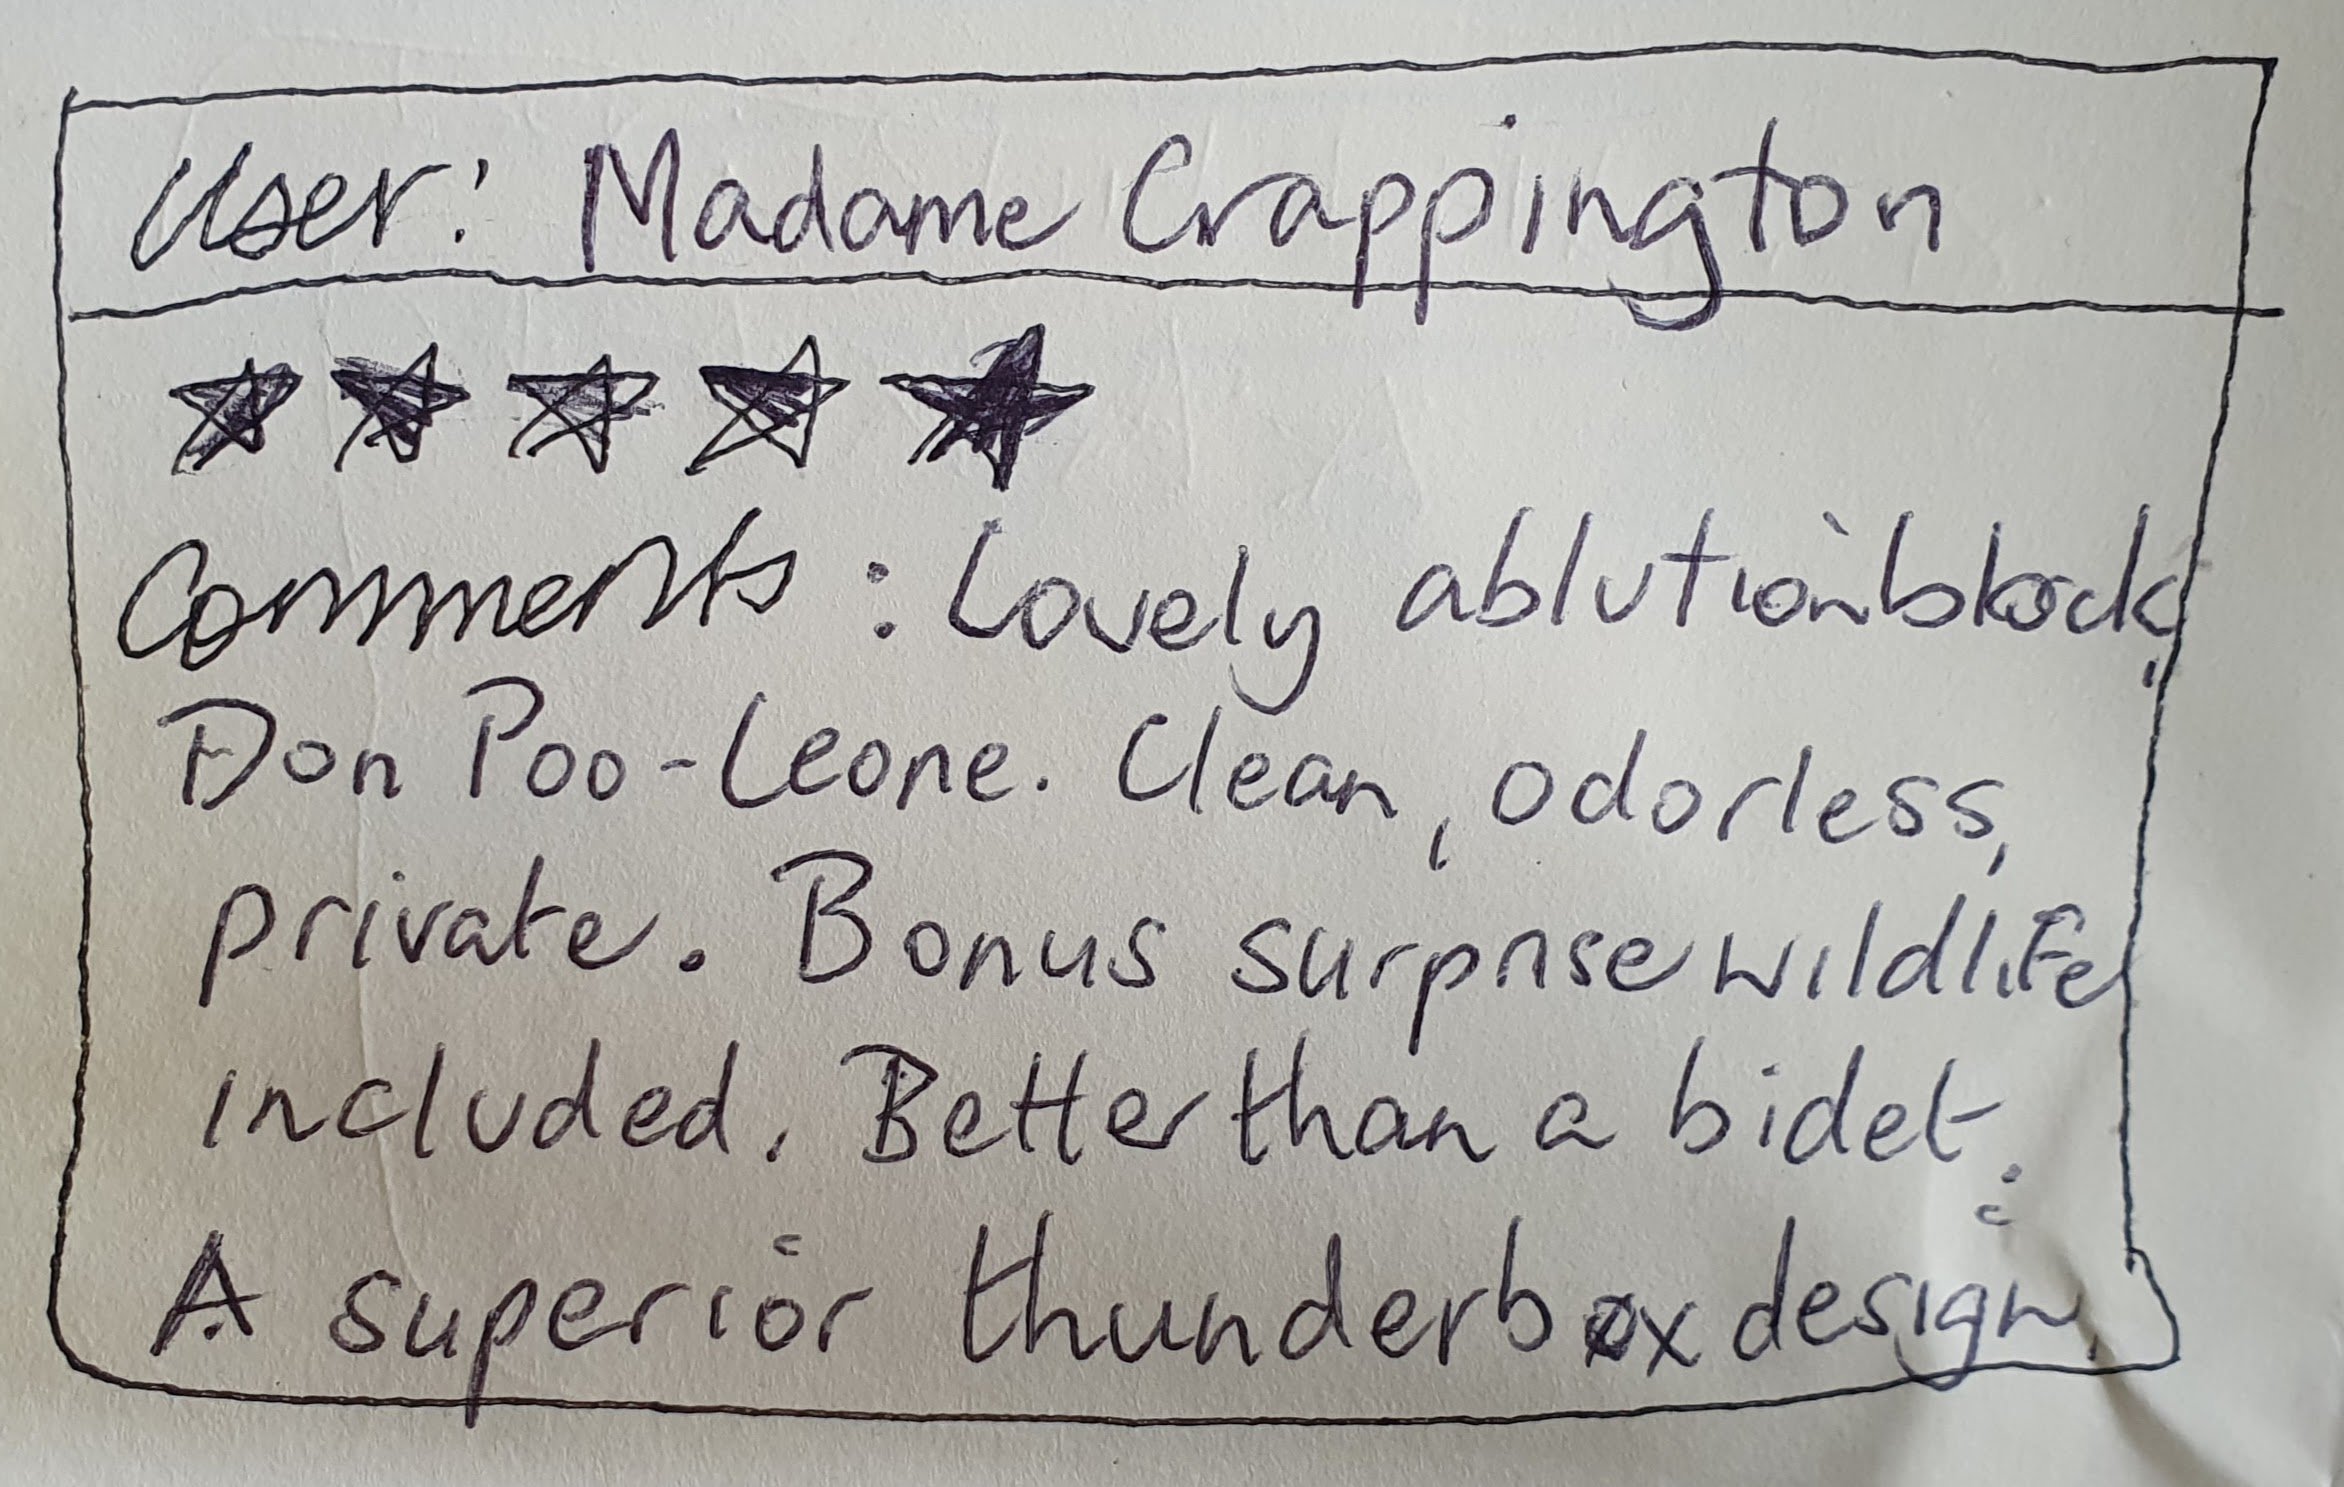 User: Madame Crappington
★★★★★
Comments: Lovely ablution block,
Don Poo-Leone. Clean, odorless,
private. Bonus surprise wildlife
included. Better than a bidet.
A superior thunderbox design.